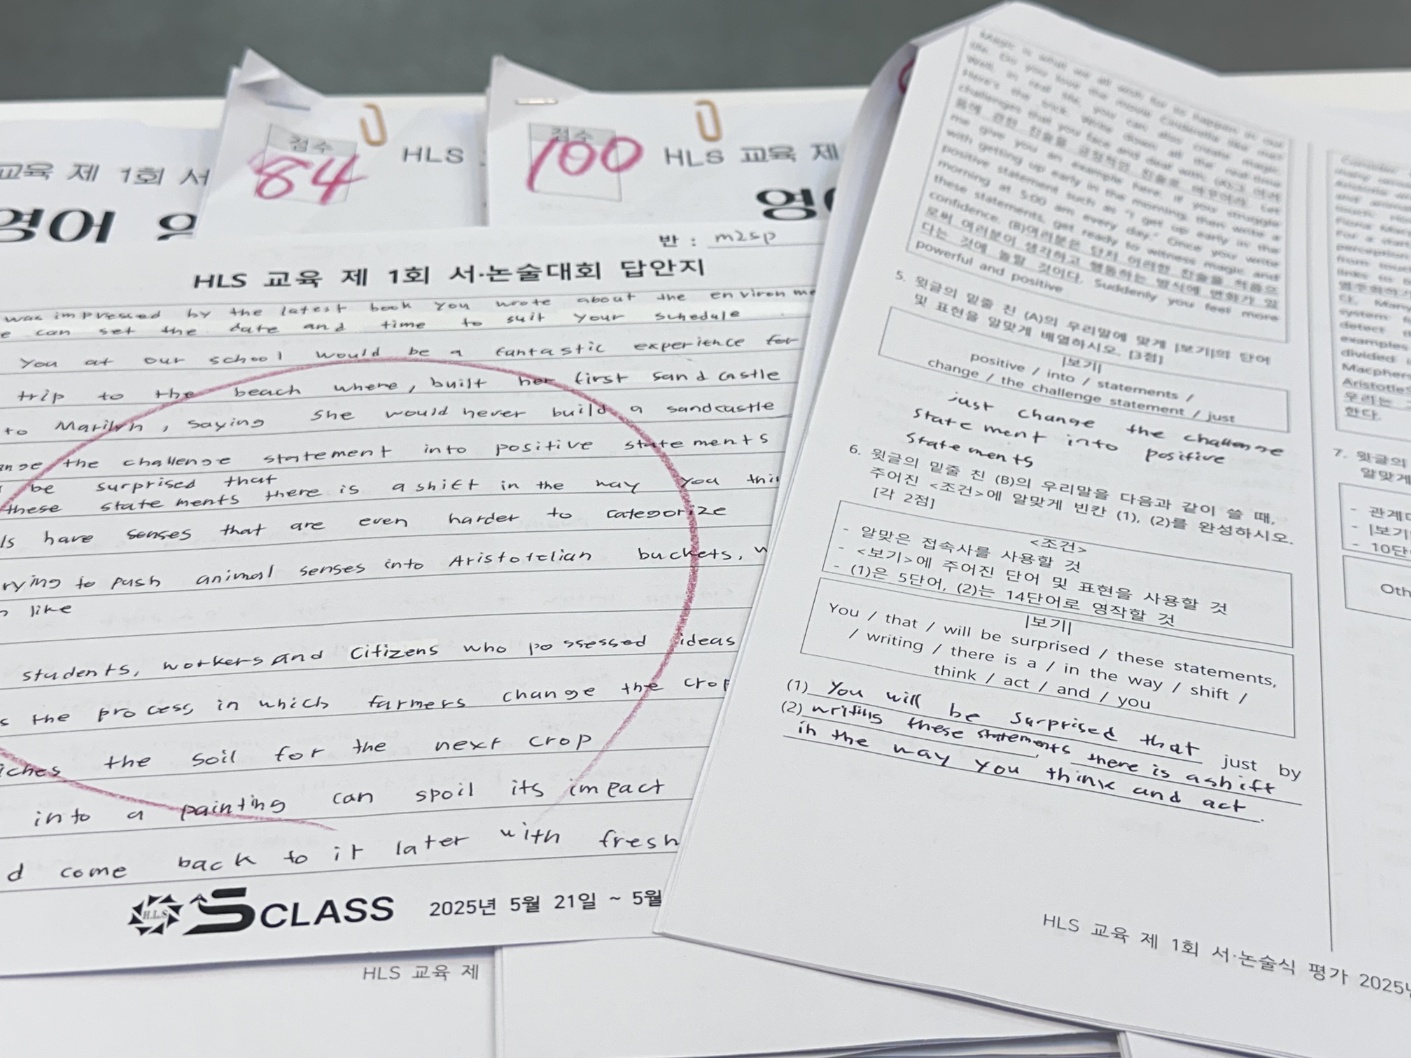 교육 제 1회 서
영어
점수
84
HLS
점수
100
HLS 교육 제
영어
반 : m2sp
HLS 교육 제 1회 서·논술대회 답안지
was impressed by the latest book you wrote about the environme
can set the date and time to suit your schedule
you at our school would be a fantastic experience for
trip to the beach where, built her first sand castle
to Marilyn, saying she would never build a sandcastle
the challenge statement into positive statements
be surprised that
these statements there is a shift in the way you thi
have senses that are even harder to categorize
rying to push animal senses into Aristotelian buckets, w
like
students, workers and citizens who possessed ideas
the process, in which farmers change the crop
iches the soil for the next crop
into a painting can spoil its impact
d come back to it later with fresh
H.L.S S CLASS 2025년 5월 21일 ~ 5월
HLS 교육 제
Magic is what we all wish for to happen in our
life. Do you love the movie Cinderella like me?
Well, in real life, you can also create magic.
Here's the trick. Write down all the real-time
challenges that you face and deal with. (A)그 어려
움에 관한 진술을 긍정적인 진술로 바꾸어라. Let
me give you an example here. If you struggle
with getting up early in the morning, then write a
positive statement such as "I get up early in the
morning at 5:00 am every day." Once you write
these statements, get ready to witness magic and
confidence. (B)여러분은 단지 이러한 진술을 적음으
로써 여러분이 생각하고 행동하는 방식에 변화가 있
다는 것에 놀랄 것이다. Suddenly you feel more
powerful and positive
5. 윗글의 밑줄 친 (A)의 우리말에 맞게 |보기|의 단어
및 표현을 알맞게 배열하시오. [3점]
|보기|
positive / into / statements /
change / the challenge statement / just
just change the challenge
statement into positive
statements
6. 윗글의 밑줄 친 (B)의 우리말을 다음과 같이 쓸 때,
주어진 <조건>에 알맞게 빈칸 (1), (2)를 완성하시오.
[각 2점]
<조건>
- 알맞은 접속사를 사용할 것
- <보기>에 주어진 단어 및 표현을 사용할 것
- (1)은 5단어, (2)는 14단어로 영작할 것
|보기|
You / that / will be surprised / these statements,
/ writing / there is a / in the way / shift /
think / act / and / you
(1) You will be surprised that just by
(2) writing these statements there is a shift
in the way you think and act.
HLS 교육 제 1회 서·논술식 평가 2025년
7. 윗글의
알맞게
- 관계대
- |보기
- 10단
Oth